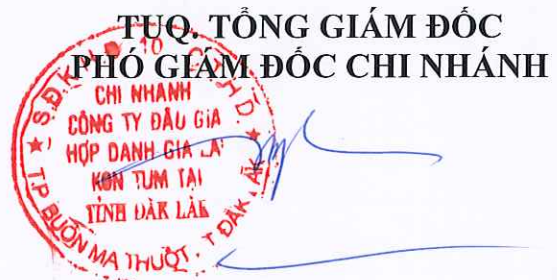 TUQ. TỔNG GIÁM ĐỐC
PHÓ GIÁM ĐỐC CHI NHÁNH
CHI NHÁNH
CÔNG TY ĐẤU GIÁ
HỢP DANH GIA LAI
KON TUM TẠI
TỈNH ĐẮK LẮK
T.P BUÔN MA THUỘT . T ĐẮK LẮK